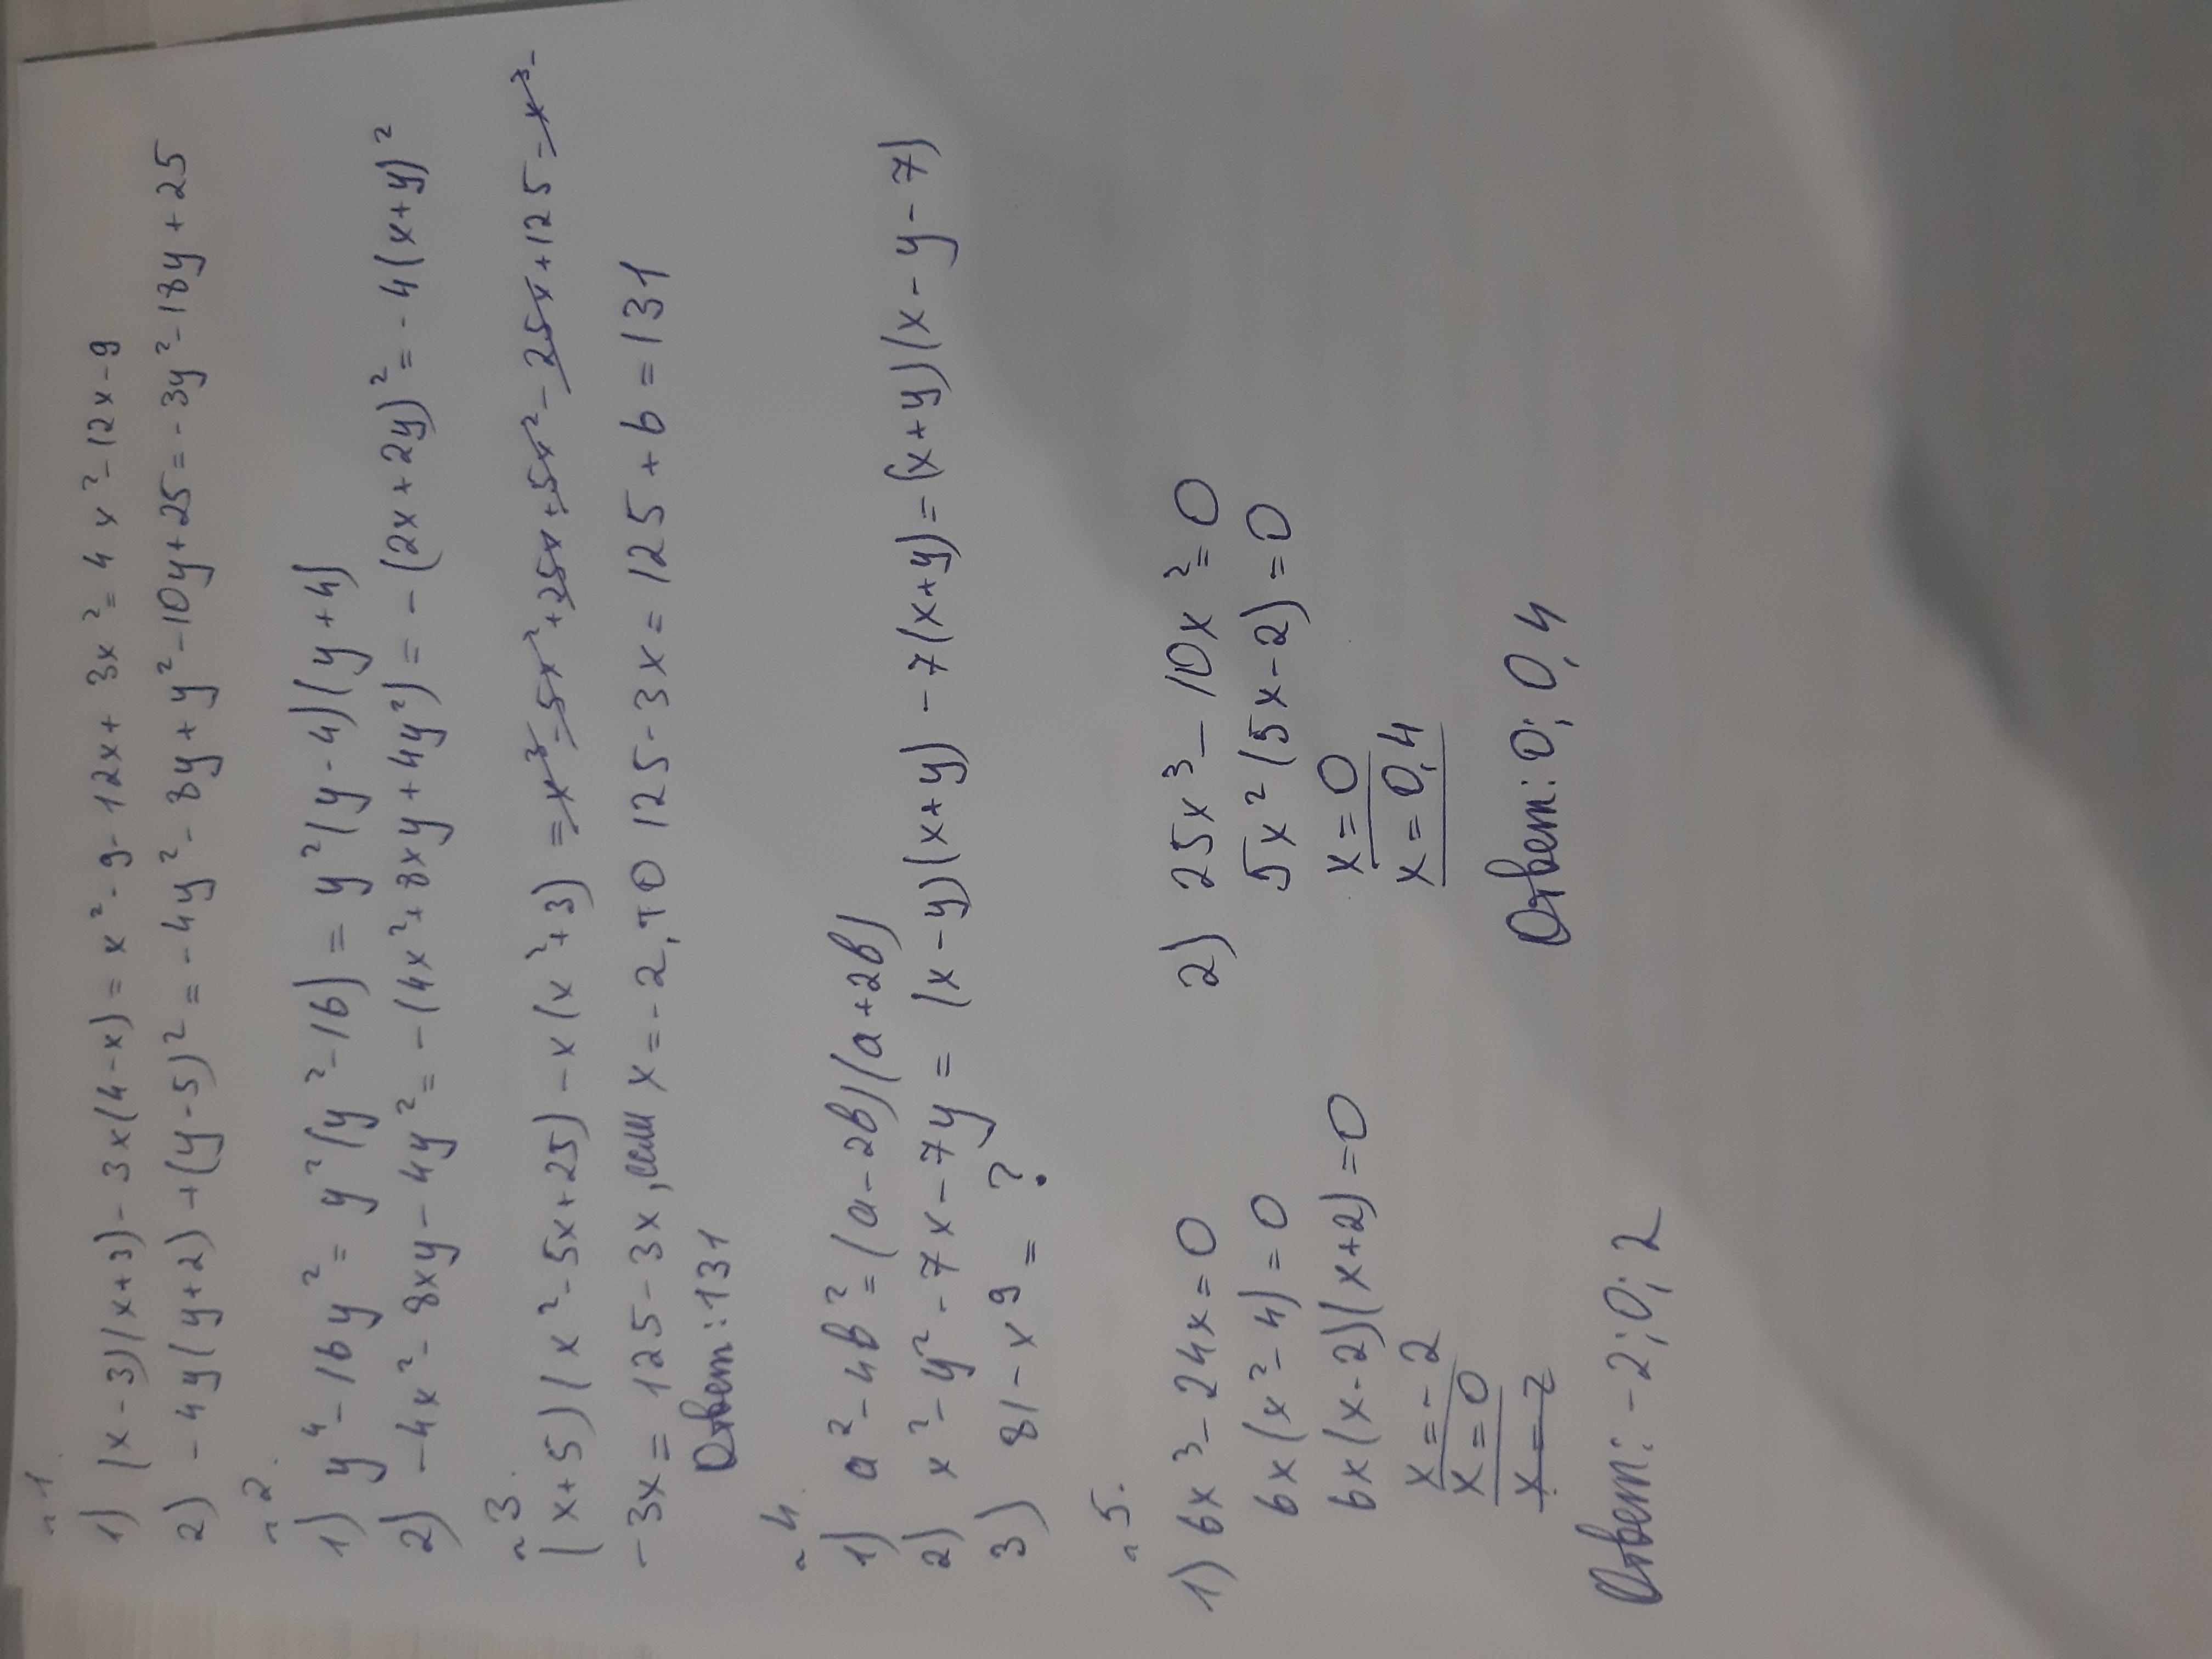 №1.
1) (x-3)(x+3)-3x(4-x)=x²-9-12x+3x²=4x²-12x-9
2) -4y(y+2)+(y-5)²=-4y²-8y+y²-10y+25=-3y²-18y+25
№2.
1) y⁴-16y²=y²(y²-16)=y²(y-4)(y+4)
2) -4x²-8xy-4y²=-(4x²+8xy+4y²)=-(2x+2y)²=-4(x+y)²
№3.
(x+5)(x²-5x+25)-x(x²+3)=x³-5x²+25x+5x²-25x+125-x³-
-3x=125-3x, если x=-2, то 125-3x=125+6=131
Ответ: 131
№4.
1) a²-4b²=(a-2b)(a+2b)
2) x²-y²-7x-7y=(x-y)(x+y)-7(x+y)=(x+y)(x-y-7)
3) 81-x⁹=?
№5.
1) 6x³-24x=0
6x(x²-4)=0
6x(x-2)(x+2)=0
x=-2
x=0
x=2
Ответ: -2; 0; 2
2) 25x³-10x²=0
5x²(5x-2)=0
x=0
x=0,4
Ответ: 0; 0,4